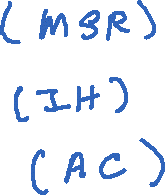 (MSR)
(IH)
(AC)